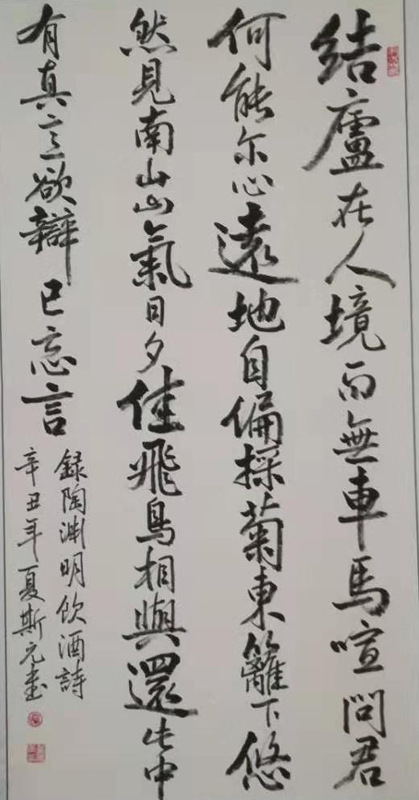 結廬在人境而無車馬喧問君
何能尔心遠地自偏採菊東籬下悠
然見南山山氣日夕佳飛鳥相與還此中
有真意欲辯已忘言
録陶渊明飲酒詩
辛丑年夏斯元書